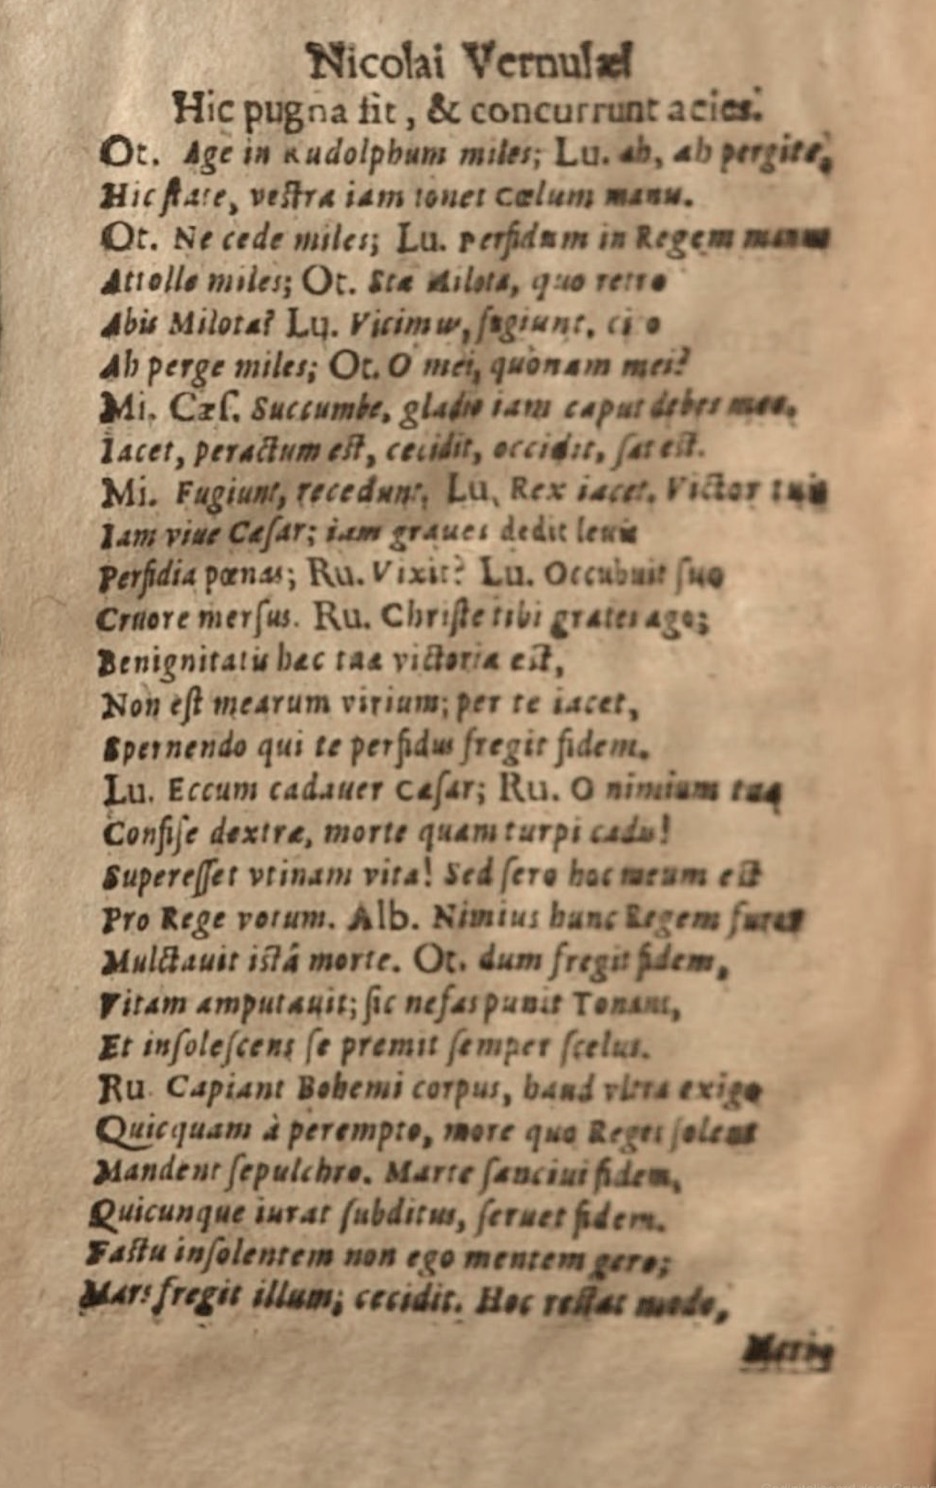 Nicolai Vernulæi
Hic pugna fit, & concurrunt acies.
Ot. Age in Rudolphum miles; Lu. ah, ah pergite,
Hic ſtate, veſtra iam tonet cœlum manu.
Ot. Ne cede miles; Lu. perfidum in Regem manum
Attolle miles; Ot. Sta Milota, quo retro
Abis Milota? Lu. Vicimus, fugiunt, cito
Ah perge miles; Ot. O mei, quònam mei?
Mi. Cæſ. Succumbe, gladio iam caput debes meo.
Iacet, peractum eſt, cecidit, occidit, ſat eſt.
Mi. Fugiunt, recedunt. Lu. Rex iacet. Victor tuis
Iam viue Cæſar; iam graues dedit leuis
Perfidia pœnas; Ru. Vixit? Lu. Occubuit ſuo
Cruore merſus. Ru. Chriſte tibi grates ago;
Benignitatis hæc tua victoria eſt,
Non eſt mearum virium; per te iacet,
Spernendo qui te perfidus fregit fidem.
Lu. Eccum cadauer Cæſar; Ru. O nimium tuæ
Confiſe dextræ, morte quam turpi cadis!
Supereſſet vtinam vita! Sed ſero hoc meum eſt
Pro Rege votum. Alb. Nimius hunc Regem furor
Mulctauit iſtâ morte. Ot. dum fregit fidem,
Vitam amputauit; ſic nefas punit Tonans,
Et inſoleſcens ſe premit ſemper ſcelus.
Ru. Capiant Bohemi corpus, haud vltra exigo
Quicquam à perempto, more quo Reges ſolent
Mandent ſepulchro. Marte ſanciui fidem,
Quicunque iurat ſubditus, ſeruet fidem.
Faſtu inſolentem non ego mentem gero;
Mars fregit illum; cecidit. Hoc reſtat modo,